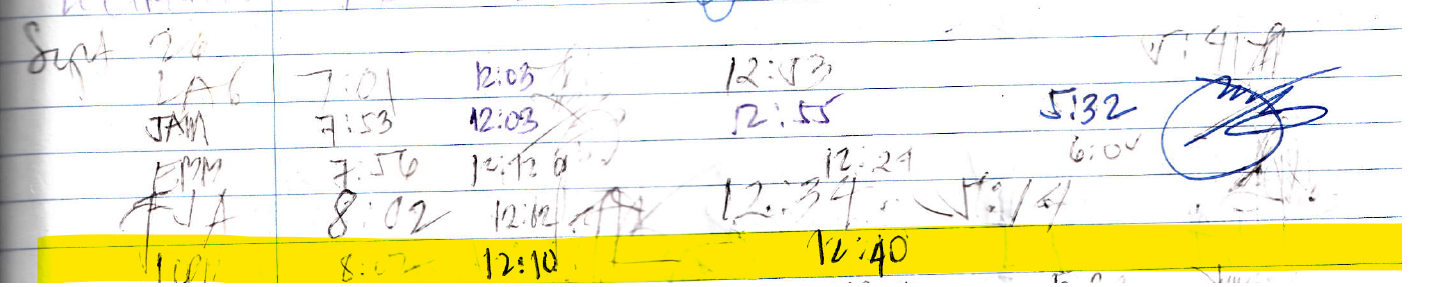 Sept 26
LAG 7:01 12:03 12:53 5:41
JAM 7:53 12:03 12:55 5:32
EMM 7:56 12:12 12:21 6:00
8:02 12:12 12:34 5:14
8:02 12:10 12:40